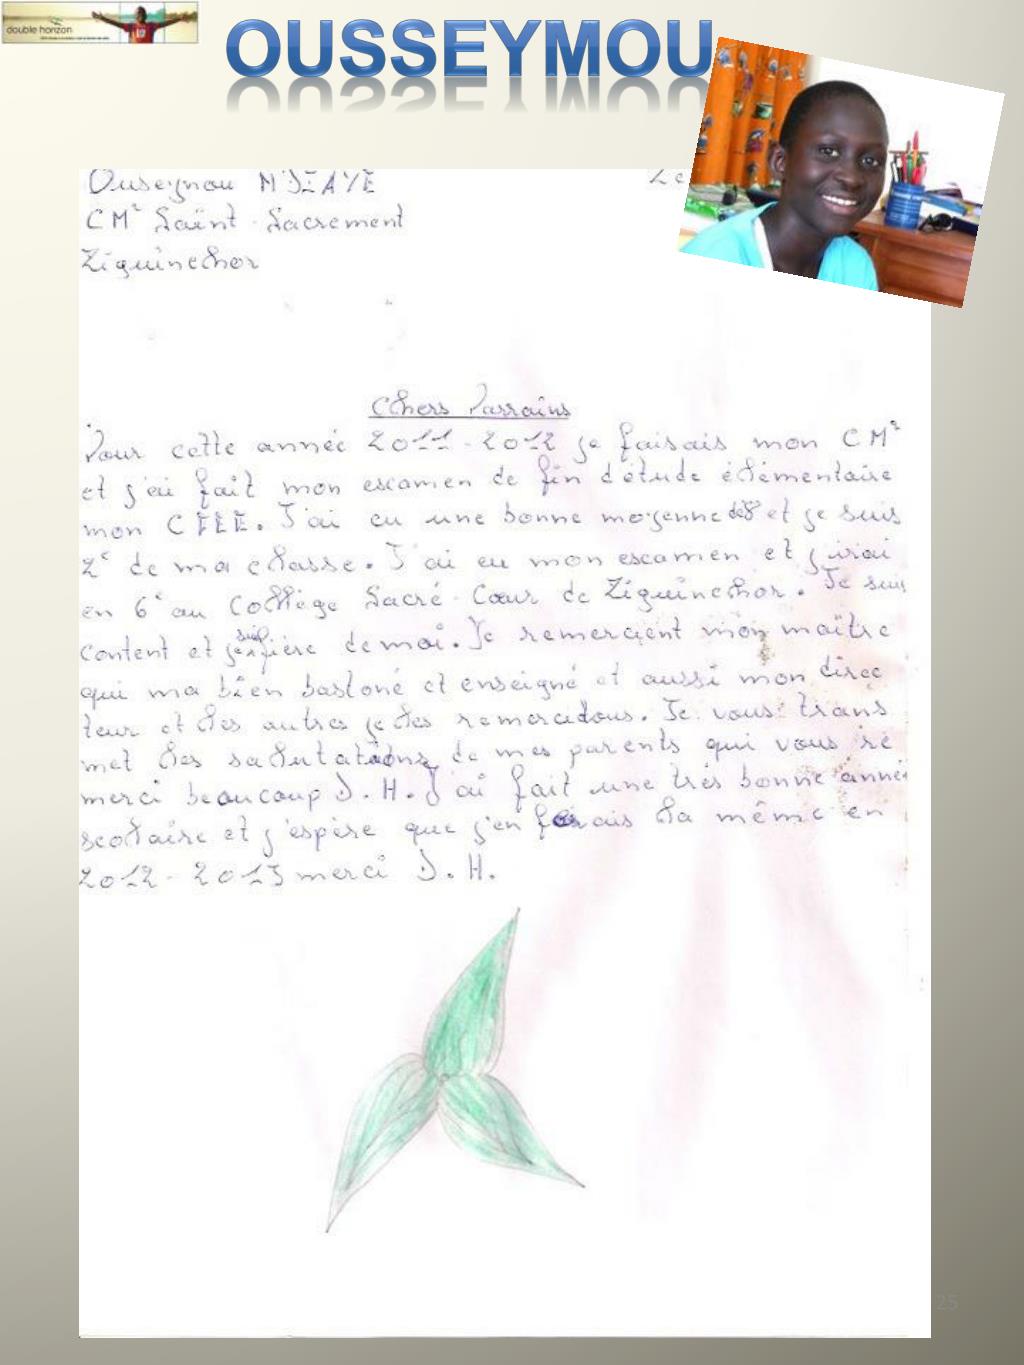 double horizon
OUSSEYMOU
Ouseynou N'DIAYE
Le
CM² Saint-Sacrement
Ziguinchor
Chers Parrains
Pour cette année 2011-2012 je faisais mon CM²
et j'ai fait mon escamen de fin d'étude élémentaire
mon CFEE. J'ai eu une bonne moyenne et je suis
2e de ma classe. J'ai eu mon escamen et j'irai
en 6e au Collège Sacré-Cœur de Ziguinchor. Je suis
content et je suis fière de moi. Je remercient mon maître
qui ma bien bastoné et enseigné et aussi mon direc
teur et les autres je les remercidous. Je vous trans
met les salutations de mes parents qui vous re
merci beaucoup D.H. J'ai fait une très bonne année
scolaire et j'espère que j'en ferais la même en
2012-2013 merci D.H.
25